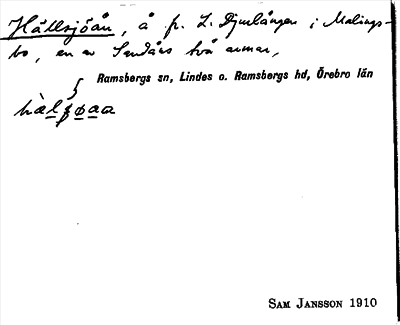 Hällsjöån, å fr. L. Djurlången i Malings-
bo, en av Sandåns två armar,
Ramsbergs sn, Lindes o. Ramsbergs hd, Örebro län
SAM JANSSON 1910